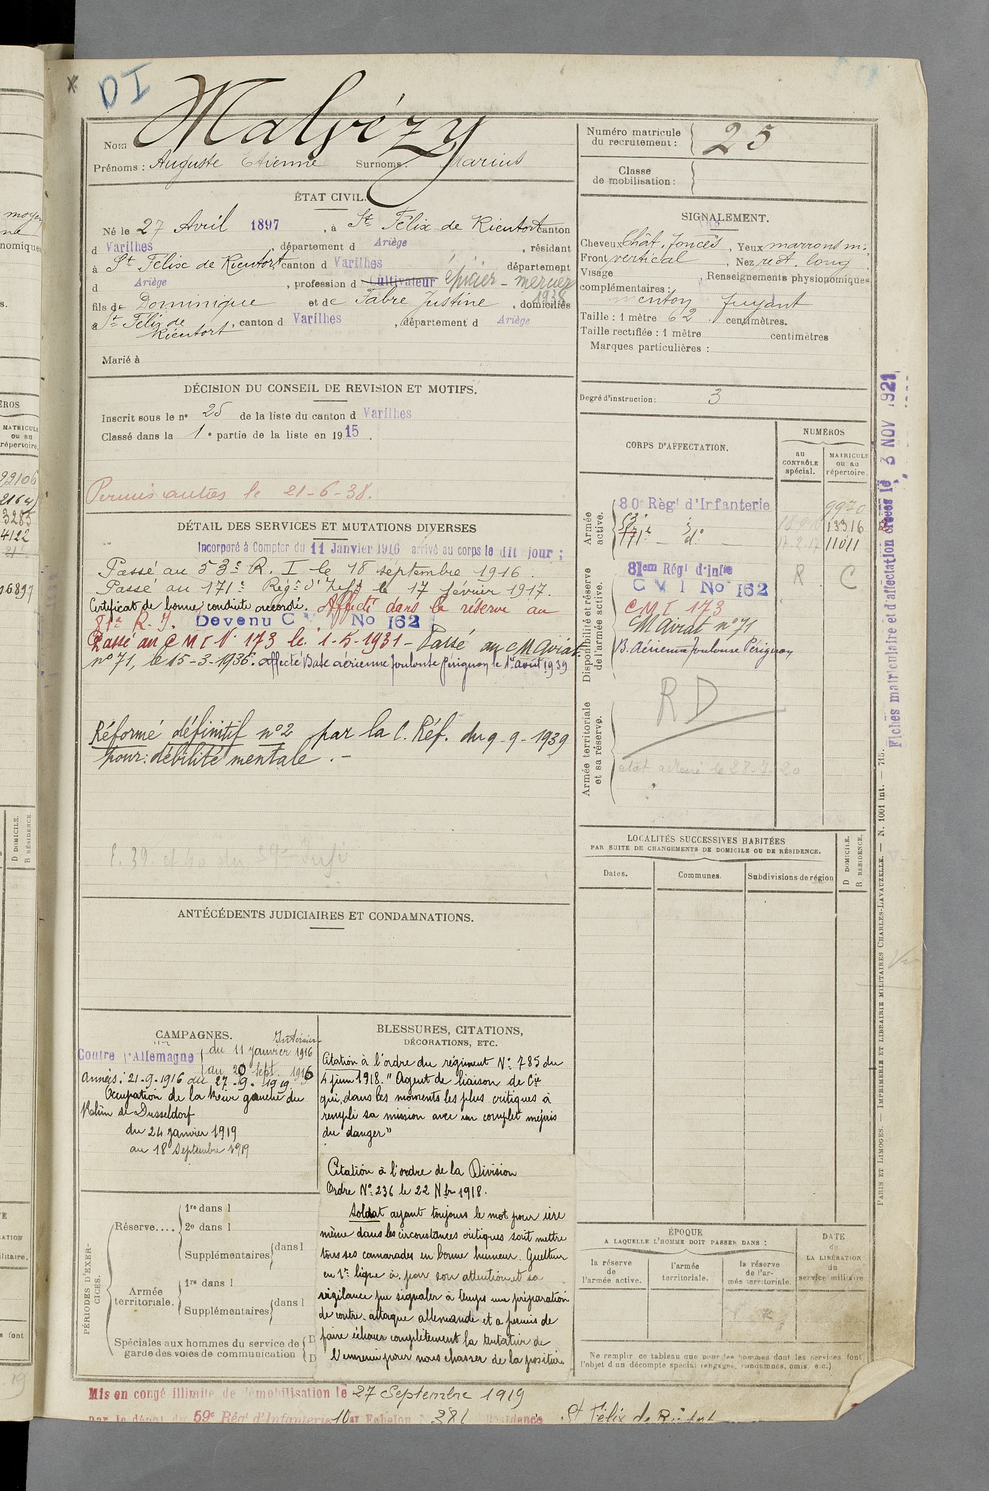 DI
Nom Malvézy
Prénoms : Auguste Etienne Surnoms : Marius
Numéro matricule du recrutement : 25
Classe de mobilisation :
ÉTAT CIVIL.
Né le 27 Avril 1897, à St Félix de Rieutort canton
d Varilhes, département d Ariège, résidant
à St Félix de Rieutort canton d Varilhes département
d Ariège, profession d Cultivateur épicier - mercier
1938
fils de Dominique et de Fabre Justine, domiciliés
à St Félix de Rieutort, canton d Varilhes, département d Ariège
Marié à
SIGNALEMENT.
Cheveux Chât. foncés, Yeux marrons m.
Front vertical, Nez rect. long
Visage, Renseignements physionomiques
complémentaires :
menton fuyant
Taille : 1 mètre 62 centimètres.
Taille rectifiée : 1 mètre centimètres
Marques particulières :
Degré d'instruction : 3
DÉCISION DU CONSEIL DE REVISION ET MOTIFS.
Inscrit sous le n° 25 de la liste du canton d Varilhes
Classé dans la 1e partie de la liste en 1915.
Permis autos le 21-6-38.
DÉTAIL DES SERVICES ET MUTATIONS DIVERSES
Incorporé à Compter du 11 Janvier 1916 arrivé au corps le dit jour ;
Passé au 53e R. I le 18 septembre 1916.
Passé au 171e Régt d'Infie le 17 février 1917.
Certificat de bonne conduite accordé. Affecté dans la réserve au
81e R. I. Devenu C V I No 162
Passé au C M I N° 173 le 1-5-1931 - Passé au C M Aviat.
n° 71, le 15-3-1936. Affecté Base aérienne Toulouse Pérignon le 1er août 1939
Réformé définitif n°2 par la C. Réf. du 9-9-1939
pour : débilité mentale. -
CORPS D'AFFECTATION.
NUMÉROS
AU CONTRÔLE spécial.
MATRICULE ou au répertoire.
Armée active.
80e Régt d'Infanterie 9970
53e d° 13316
171e - d° 11011
Disponibilité et réserve de l'armée active.
81em Régt d'Infie
C V I No 162
C M I 173
C M Aviat n°71
B. Aérienne Toulouse Pérignon
Armée territoriale et sa réserve.
RD
LOCALITÉS SUCCESSIVES HABITÉES
PAR SUITE DE CHANGEMENTS DE DOMICILE OU DE RÉSIDENCE.
Dates.
Communes.
Subdivisions de région
D DOMICILE.
R RÉSIDENCE.
ANTÉCÉDENTS JUDICIAIRES ET CONDAMNATIONS.
CAMPAGNES.
Intérieur
Contre l'Allemagne du 11 Janvier 1916
au 20 sept. 1916
Armées : 21-9-1916 au 27-9-1919
Occupation de la rive gauche du
Rhin de Dusseldorf
du 24 janvier 1919
au 18 Septembre 1919
BLESSURES, CITATIONS,
DÉCORATIONS, ETC.
Citation à l'ordre du régiment N° 785 du
4 juin 1918. " Agent de liaison de Cie
qui, dans les moments les plus critiques à
rempli sa mission avec un complet mépris
du danger"
Citation à l'ordre de la Division
Ordre N° 236 le 22 Nbr 1918.
Soldat ayant toujours le mot pour rire
même dans les circonstances critiques sait mettre
tous ses camarades en bonne humeur. Guetteur
en 1re ligne a par son attention et sa
vigilance pu signaler à temps une préparation
de contre-attaque allemande et a permis de
faire échouer complètement la tentative de
l'ennemi pour nous chasser de la position
PÉRIODES D'EXERCICES.
Réserve....
1re dans l
2e dans l
Supplémentaires dans l
Armée territoriale.
1re dans l
Supplémentaires dans l
Spéciales aux hommes du service de
garde des voies de communication
ÉPOQUE
A LAQUELLE L'HOMME DOIT PASSER DANS :
la réserve de l'armée active.
l'armée territoriale.
la réserve de l'armée territoriale.
DATE DE LA LIBÉRATION du service militaire
Ne remplir ce tableau que pour les hommes dont les services font
l'objet d'un décompte spécial (engagés, condamnés, omis, etc.)
Mis en congé illimité de démobilisation le 27 Septembre 1919
par le dépôt du 59e Régt d'Infanterie 10e Echelon 381 Résidence St Félix de Rieutort
Fiches matriculaire et d'affectation créées le 3 NOV 1921
PARIS ET LIMOGES. — IMPRIMERIE ET LIBRAIRIE MILITAIRES CHARLES-LAVAUZELLE. — N. 1001 int. — 715.